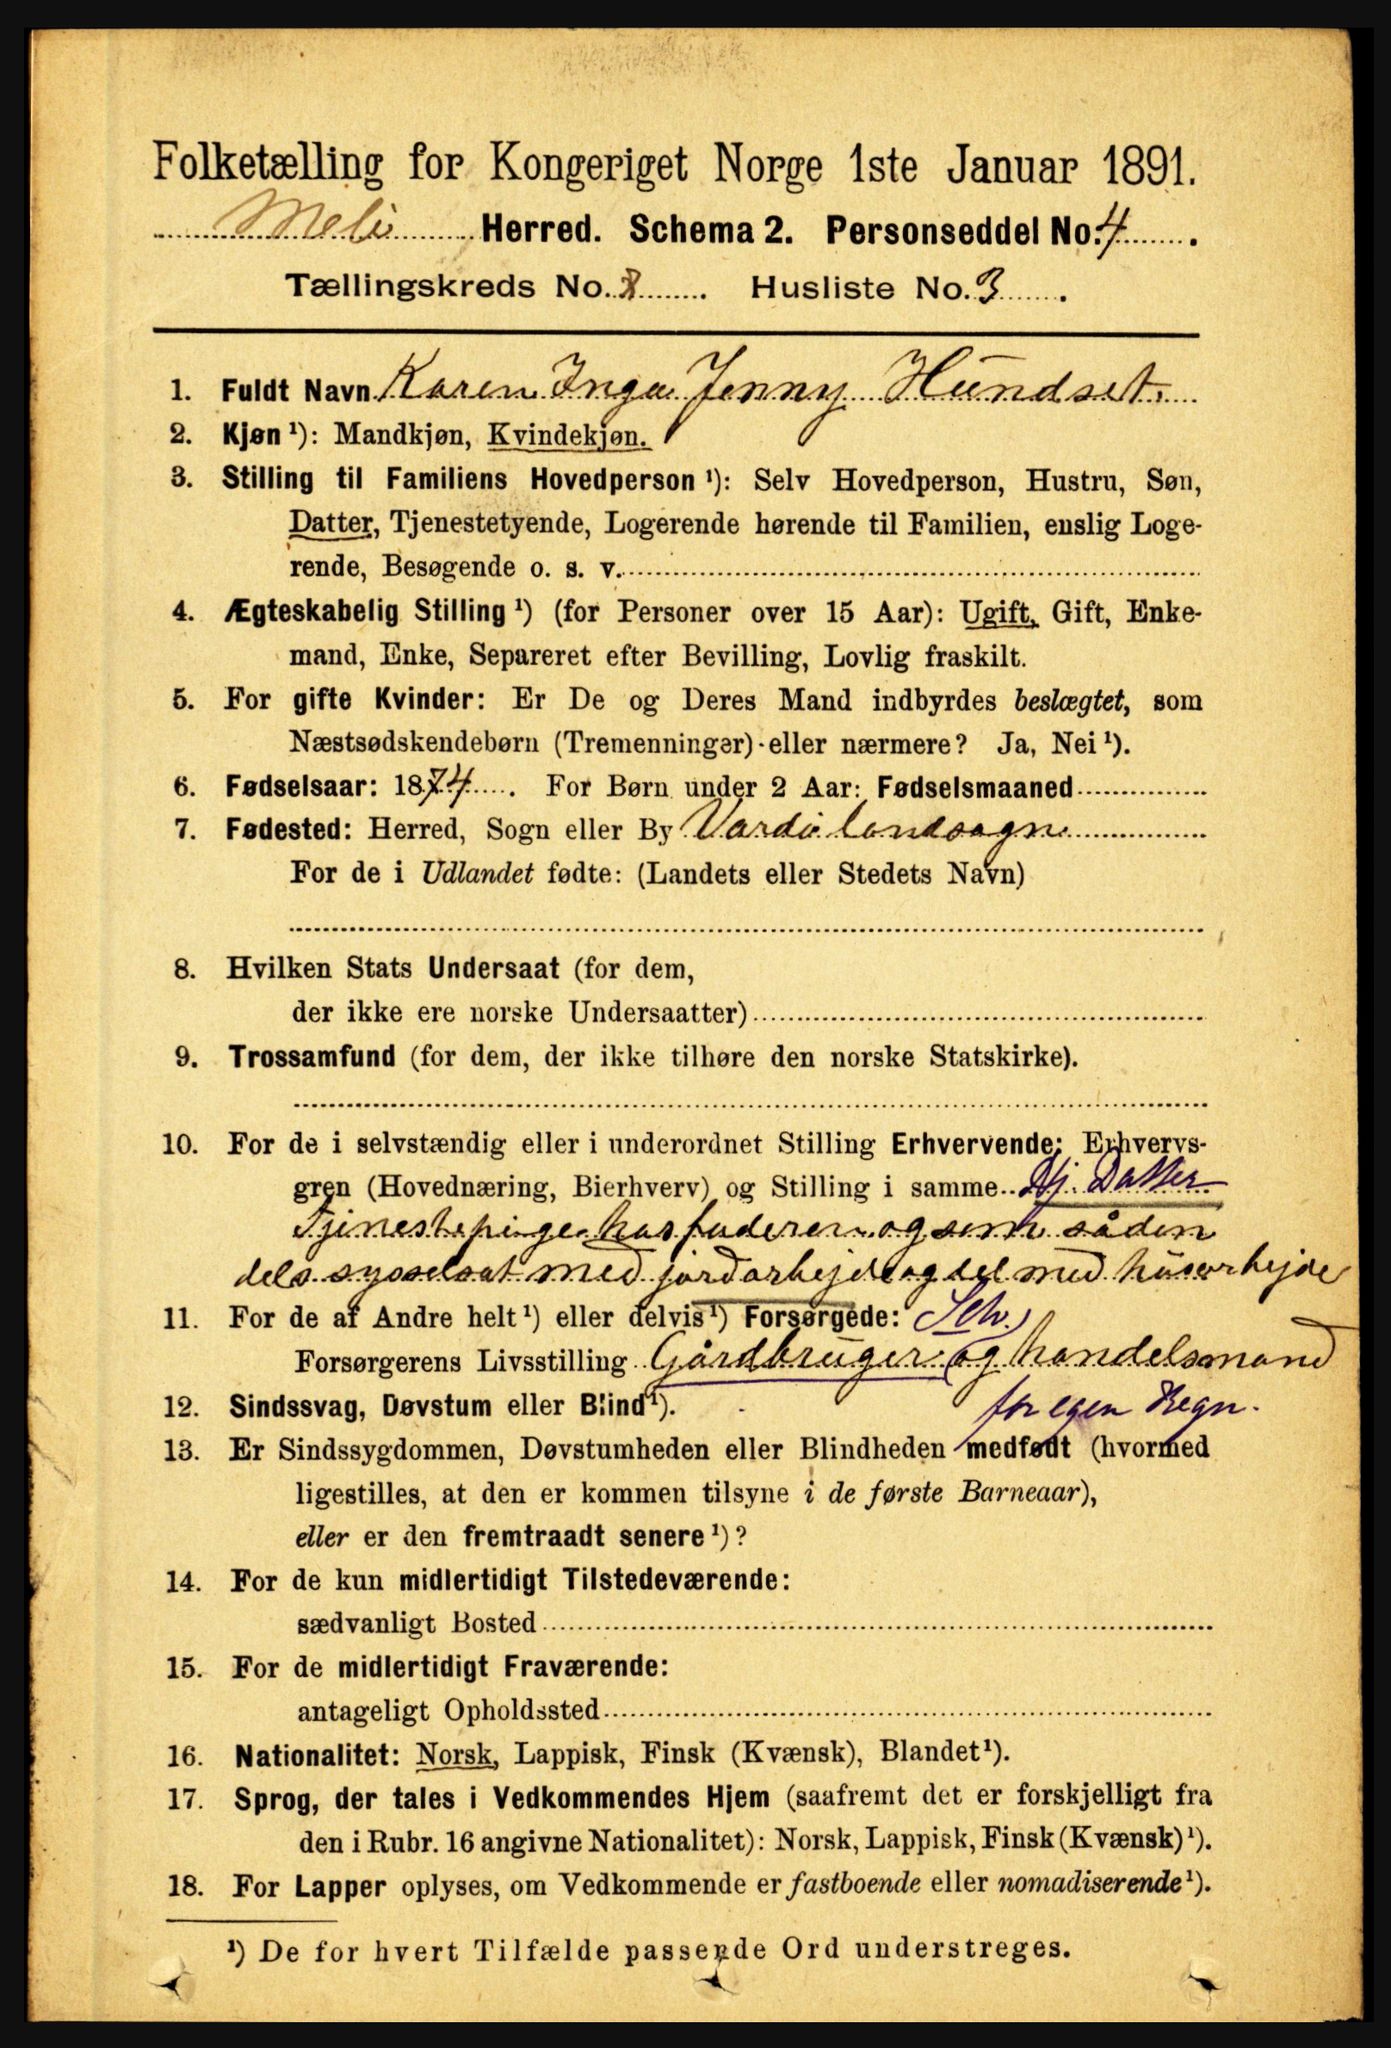 Folketælling for Kongeriget Norge 1ste Januar 1891.
Melö Herred. Schema 2. Personseddel No. 4.
Tællingskreds No. 8. Husliste No. 3.
1. Fuldt Navn Karen Inga Jenny Hundset.
2. Kjøn ¹): Mandkjøn, Kvindekjøn.
3. Stilling til Familiens Hovedperson ¹): Selv Hovedperson, Hustru, Søn,
Datter, Tjenestetyende, Logerende hørende til Familien, enslig Loge-
rende, Besøgende o. s. v.
4. Ægteskabelig Stilling ¹) (for Personer over 15 Aar): Ugift, Gift, Enke-
mand, Enke, Separeret efter Bevilling, Lovlig fraskilt.
5. For gifte Kvinder: Er De og Deres Mand indbyrdes beslægtet, som
Næstsødskendebørn (Tremenninger) eller nærmere? Ja, Nei ¹).
6. Fødselsaar: 1874. For Børn under 2 Aar: Fødselsmaaned
7. Fødested: Herred, Sogn eller By Vardö landsogn
For de i Udlandet fødte: (Landets eller Stedets Navn)
8. Hvilken Stats Undersaat (for dem,
der ikke ere norske Undersaatter)
9. Trossamfund (for dem, der ikke tilhøre den norske Statskirke).
10. For de i selvstændig eller i underordnet Stilling Erhvervende: Erhvervs-
gren (Hovednæring, Bierhverv) og Stilling i samme Hj. Datter
Tjenestepige hos faderen og som sådan
dels sysselsat med jordarbejde og del med husarbejde
11. For de af Andre helt ¹) eller delvis ¹) Forsørgede: Selv.
Forsørgerens Livsstilling Gårdbruger og handelsmand
for egen Regn.
12. Sindssvag, Døvstum eller Blind ¹).
13. Er Sindssygdommen, Døvstumheden eller Blindheden medfødt (hvormed
ligestilles, at den er kommen tilsyne i de første Barneaar),
eller er den fremtraadt senere ¹)?
14. For de kun midlertidigt Tilstedeværende:
sædvanligt Bosted
15. For de midlertidigt Fraværende:
antageligt Opholdssted
16. Nationalitet: Norsk, Lappisk, Finsk (Kvænsk), Blandet ¹).
17. Sprog, der tales i Vedkommendes Hjem (saafremt det er forskjelligt fra
den i Rubr. 16 angivne Nationalitet): Norsk, Lappisk, Finsk (Kvænsk) ¹).
18. For Lapper oplyses, om Vedkommende er fastboende eller nomadiserende ¹).
¹) De for hvert Tilfælde passende Ord understreges.